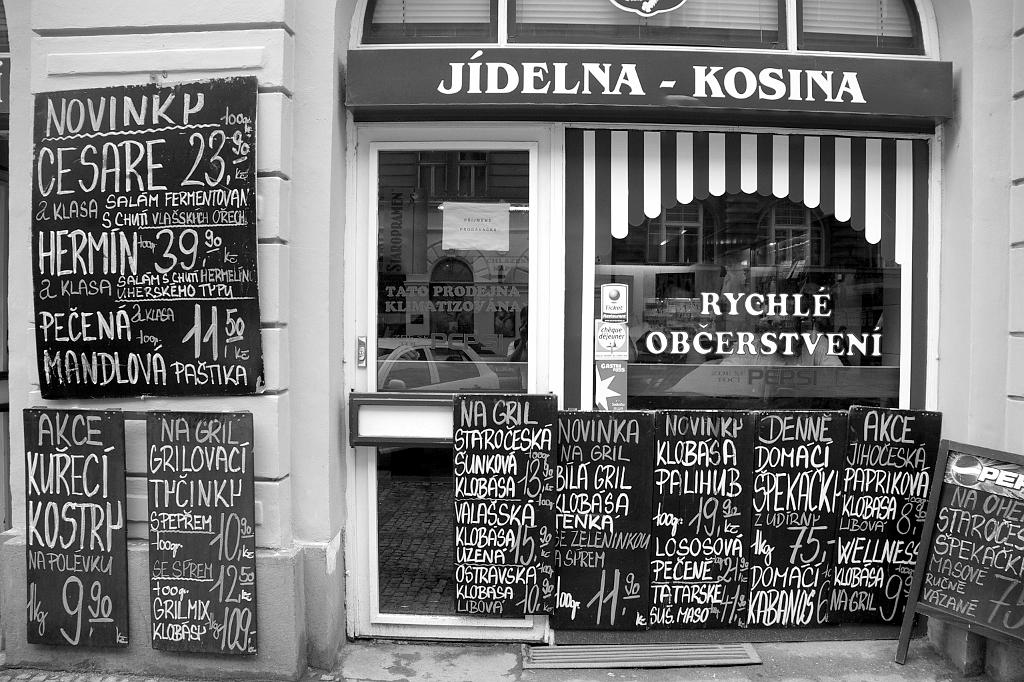 JÍDELNA - KOSINA
NOVINKY 100gr.
CESARE 23,90 Kč
2 KLASA SALÁM FERMENTOVAN
S CHUTÍ VLAŠSKÝCH OŘECH.
HERMÍN 100gr. 39,90 Kč
2 KLASA SALÁM S CHUTÍ HERMELÍN
UHERSKÉHO TYPU
PEČENÁ 2 KLASA 11,50
100gr. Kč
MANDLOVÁ PAŠTIKA
AKCE
KUŘECÍ
KOSTRY
NA POLÉVKU
1kg 9,90 Kč
NA GRIL
GRILOVACÍ
TYČINKY
S PEPŘEM
100gr. 10,90 Kč
SE SÝREM
100gr. 12,50 Kč
GRILMIX
KLOBÁSY 109,-
PŘIJMEME
PRODAVAČKU
STAROPRAMEN
TATO PRODEJNA
KLIMATIZOVÁNA
Ticket
Restaurant
chèque
déjeuner
GASTRO
PASS
RYCHLÉ
OBČERSTVENÍ
ZDE SE
TOČÍ PEPSI
NA GRIL
STAROČESKÁ
ŠUNKOVÁ
KLOBÁSA 13,90
VALAŠSKÁ
KLOBÁSA 15,90
UZENÁ
OSTRAVSKÁ
KLOBÁSA 10,
LIBOVÁ
NOVINKA
NA GRIL
BÍLÁ GRIL
KLOBÁSA
TENKÁ
SE ZELENINKOU
A SÝREM
100gr. 11,90
NOVINKY
KLOBÁSA
PALIHUB
100gr. 19,90 Kč
LOSOSOVÁ
PEČENĚ 21,90
TATARSKÉ
SUŠ. MASO
DENNĚ
DOMÁCÍ
ŠPEKÁČKY
Z UDÍRNY
1kg 75,-
DOMÁCÍ
KABANOS
AKCE
JIHOČESKÁ
PAPRIKOVÁ
KLOBÁSA 8,90
LIBOVÁ
WELLNESS
KLOBÁSA
NA GRIL 9,
PEPSI
NA OHE
STAROČES
ŠPEKÁČKY
MASOVÉ
RUČNĚ
VÁZANÉ 75